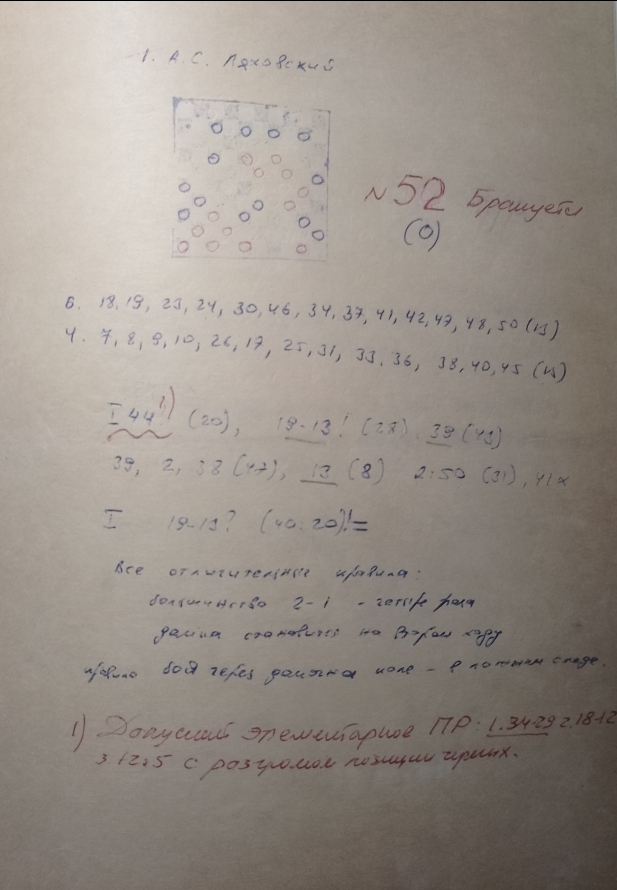 1. А.С. Ляховский
№52 Бракуется
(0)
б. 18, 19, 23, 24, 30, 46, 34, 37, 41, 42, 47, 48, 50 (13)
ч. 7, 8, 9, 10, 26, 17, 25, 31, 33, 36, 38, 40, 45 (13)
I 44! 1) (20), 19-13! (28). 39 (43)
39, 2, 38 (47), 13 (8) 2:50 (31), 41x
I 19-13? (40:20)!=
Все отличительные правила:
большинство 2-1 - четыре раза
дамка становится на втором ходу
правило боя через дамочна поле - в ложном следе.
1) Допускает элементарное ПР: 1.34-29 2.18-12
3.12:5 с разгромом позиции черных.